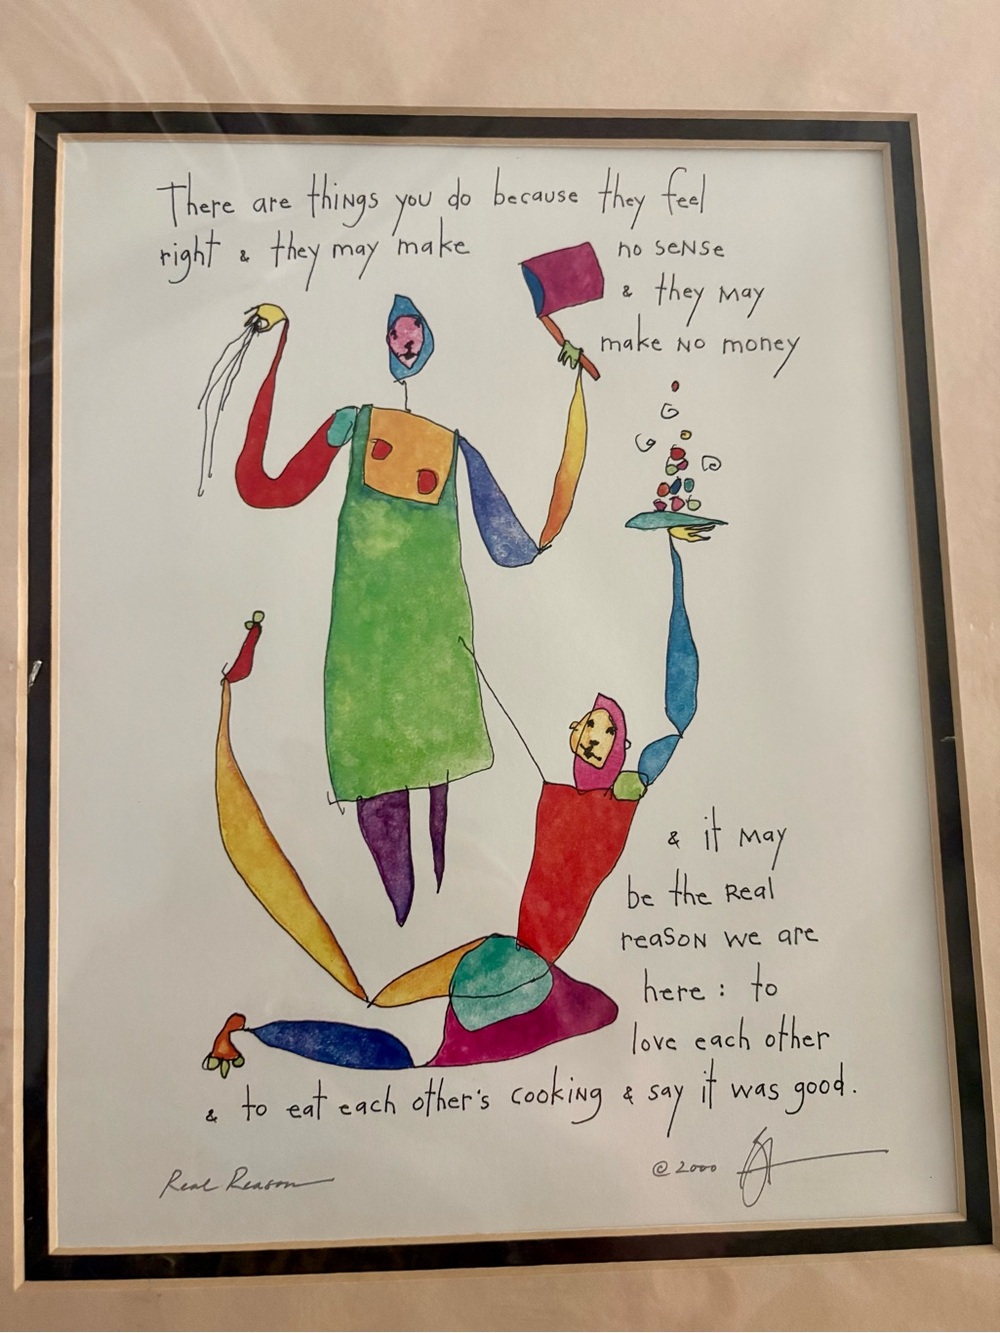 There are things you do because they feel
right & they may make no sense
& they may
make no money
& it may
be the real
reason we are
here: to
love each other
& to eat each other's cooking & say it was good.
Real Reason
© 2000